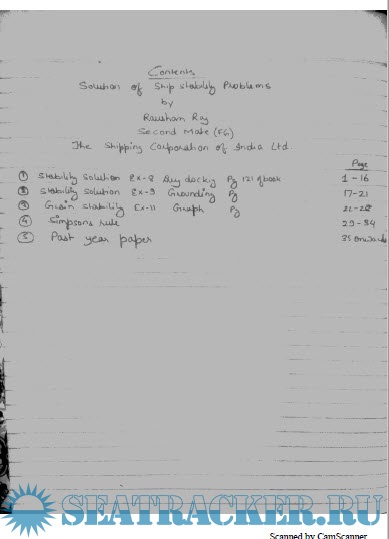 Contents
Solution of Ship stability Problems
by
Raushan Ray
Second Mate (FG)
The Shipping Corporation of India Ltd.
Page
① Stability Solution Ex-8 Dry docking Pg 121 of book 1-16
② Stability Solution Ex-9 Grounding Pg 17-21
③ Grain Stability Ex-11 Graph Pg
④ Simpsons rule
⑤ Past year paper 35 onwards
SEATRACKER.RU
Scanned by CamScanner